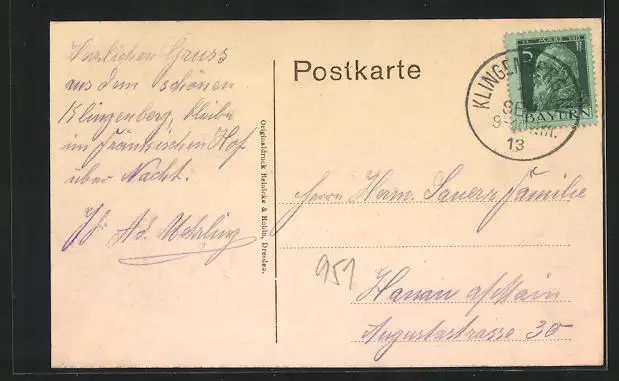 Herzlichen Gruss
aus dem schönen
Klingenberg, bleibe
im Fränkischen Hof
über Nacht.
Ad. Mehrling
Originaldruck Reinicke & Rubin, Dresden.
Postkarte
12 MÄRZ 1911
5
BAYERN
KLINGEN
SE
13
Herrn Herm. Sauers Familie
951
Hanau a/Main
Augustastrasse 30